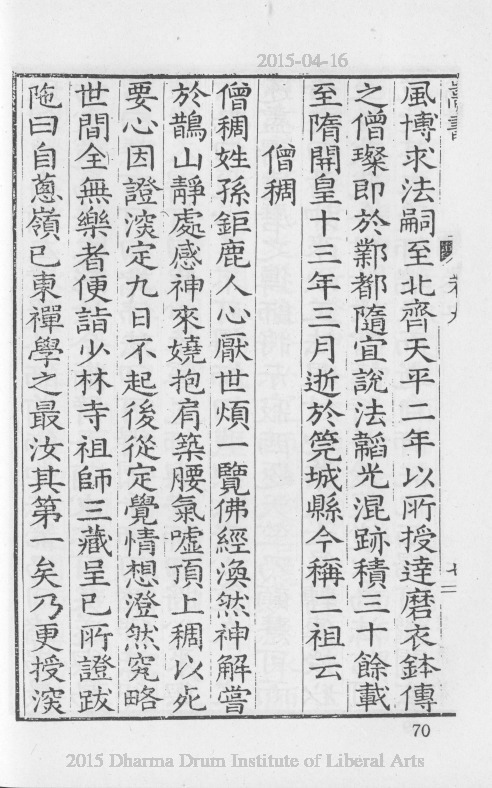 2015-04-16
風博求法嗣至北齊天平二年以所授達磨衣鉢傳
之僧璨即於鄴都隨宜說法韜光混跡積三十餘載
至隋開皇十三年三月逝於筦城縣今稱二祖云
僧稠
僧稠姓孫鉅鹿人心厭世煩一覽佛經渙然神解嘗
於鵲山靜處感神來嬈抱肩築腰氣噓頂上稠以死
要心因證深定九日不起後從定覺情想澄然究略
世間全無樂者便詣少林寺祖師三藏呈已所證跋
陁曰自蔥嶺已東禪學之最汝其第一矣乃更授深
70
2015 Dharma Drum Institute of Liberal Arts